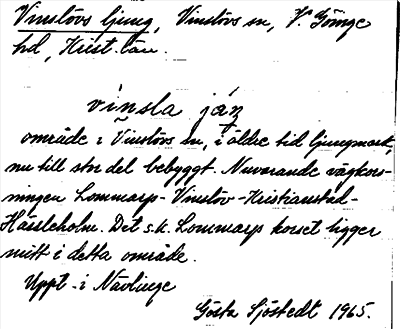 Vinslövs ljung, Vinslövs sn, V. Göinge
hd, Krist. län.
vinsla jaŋ
område i Vinslövs sn, i äldre tid ljungmark,
nu till stor del bebyggt. Nuvarande vägkors-
ningen Lommarp - Vinslöv - Kristianstad -
Hässleholm. Det s.k. Lommarps korset ligger
mitt i detta område.
Uppt. i Nävlinge
Gösta Sjöstedt 1965.